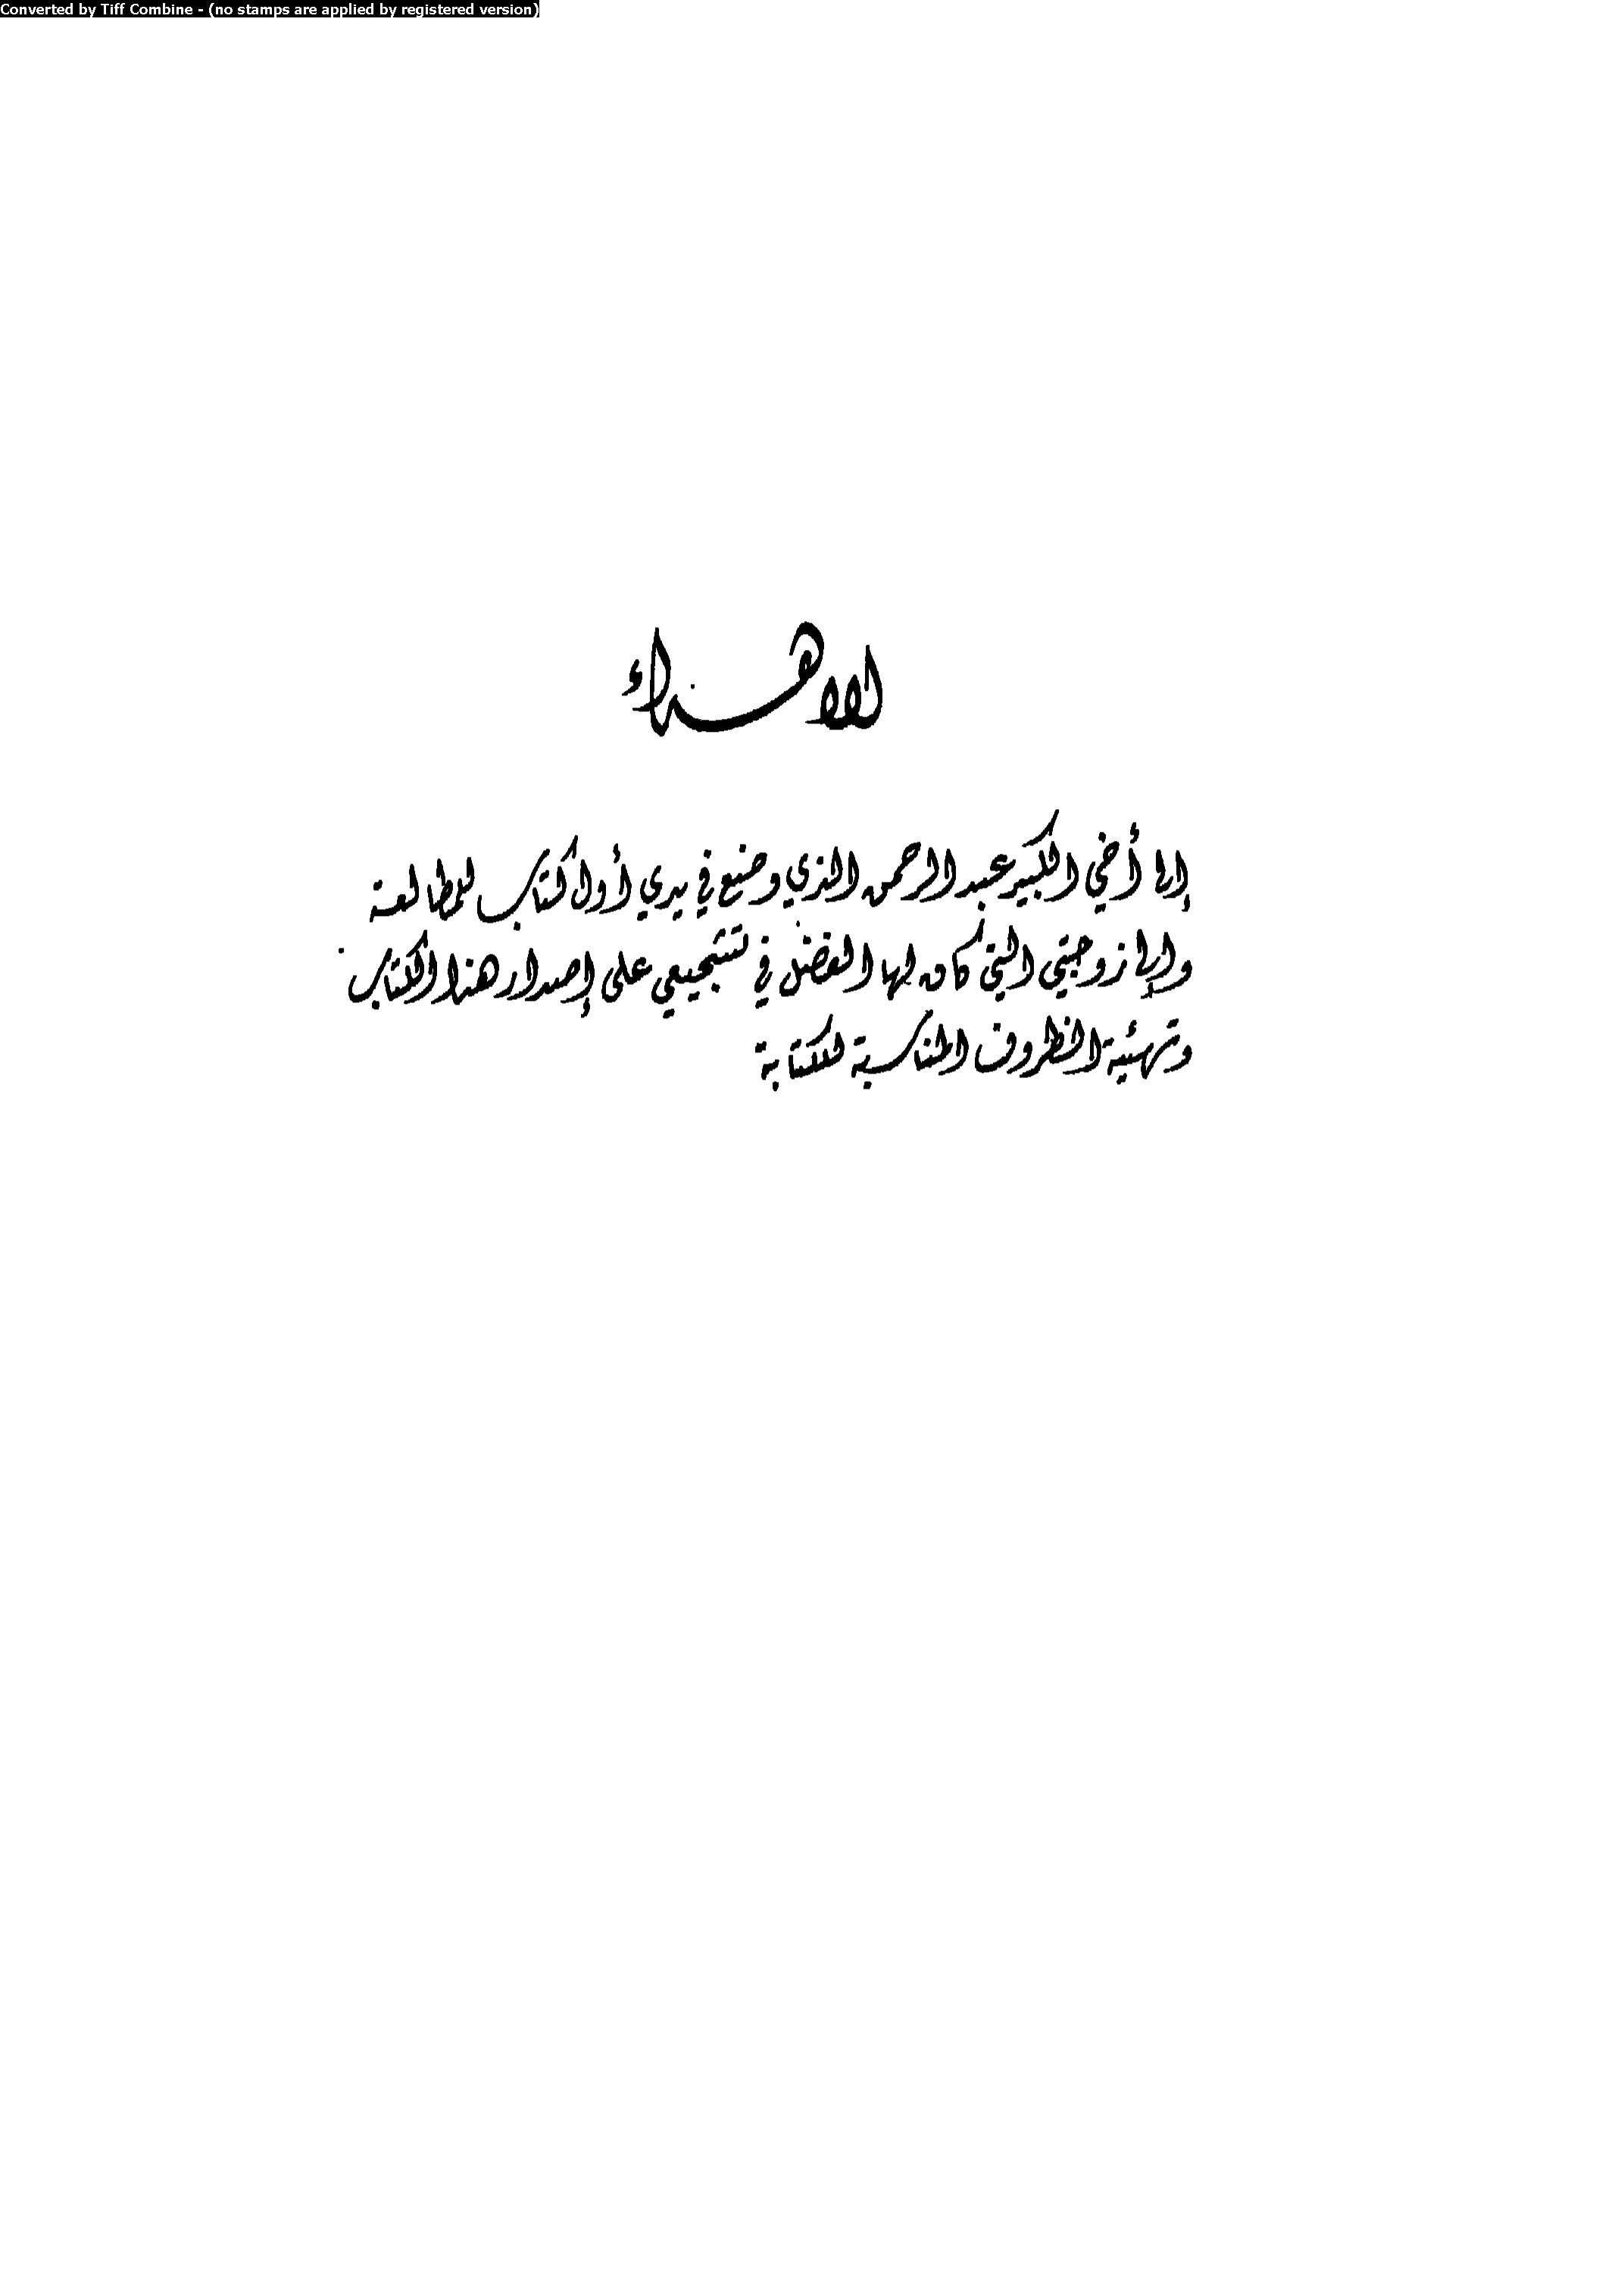 Converted by Tiff Combine - (no stamps are applied by registered version)
الاهداء
إلى أخي الكبير عبد الرحمن الذي وضع في يدي أول كتاب للمطالعة
وإلى زوجتي التي كان لها الفضل في تشجيعي على إصدار هذا الكتاب
وتهيئة الظروف المناسبة للكتابة